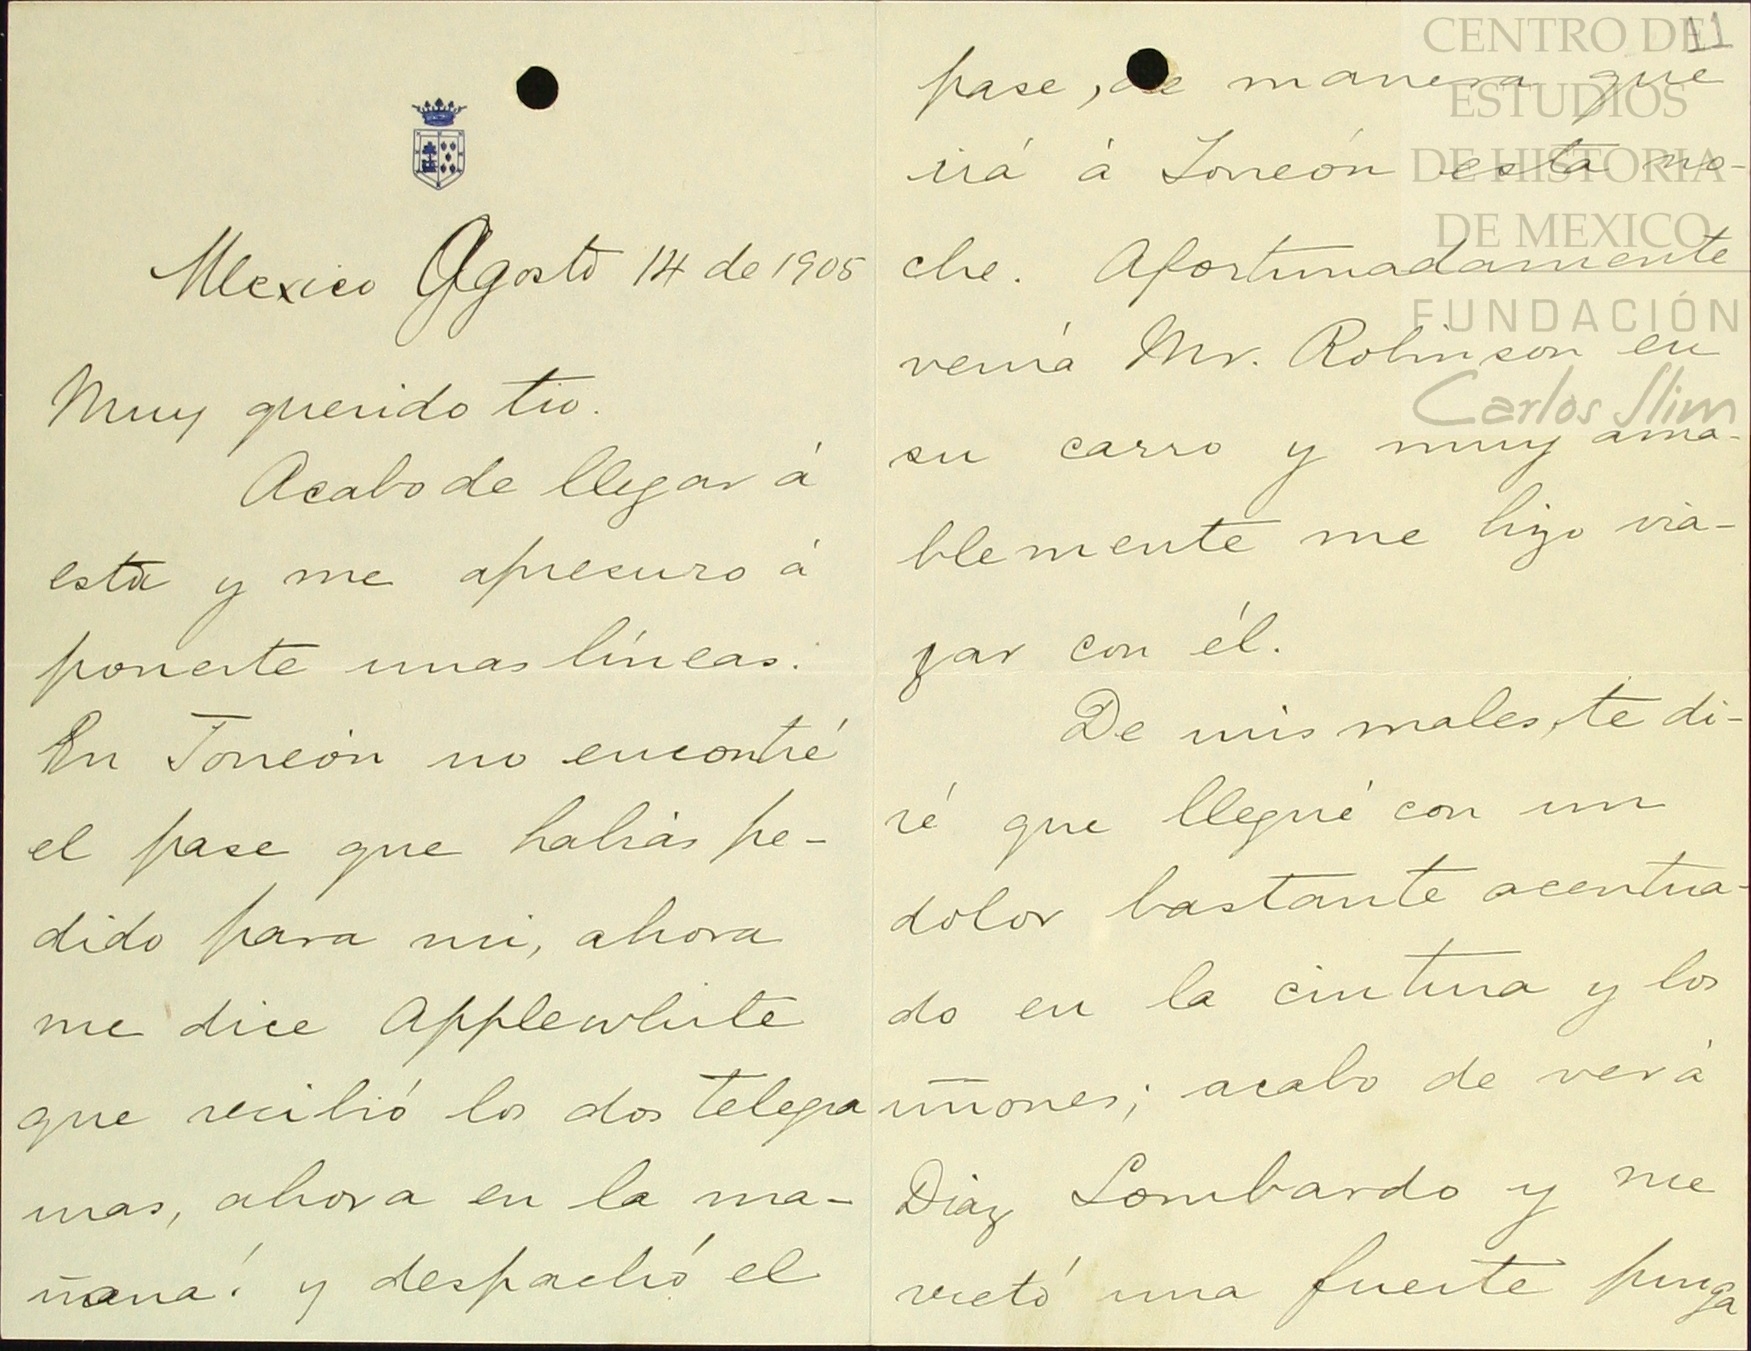 Mexico Agosto 14 de 1905
Muy querido tio.
Acabo de llegar á
esta y me apresuro á
ponerte unas líneas.
En Torreón no encontré
el pase que habías pe-
dido para mi, ahora
me dice Applewhite
que recibió los dos telegra
mas, ahora en la ma-
ñana! y despachó el
11
pase, de manera que
irá á Torreón esta no-
che. Afortunadamente
venía Mr. Robinson en
su carro y muy ama-
blemente me hizo via-
jar con él.
De mis males, te di-
ré que llegué con un
dolor bastante acentua-
do en la cintura y los
riñones; acabo de ver á
Diaz Lombardo y me
recetó una fuerte purga
CENTRO DE
ESTUDIOS
DE HISTORIA
DE MEXICO
FUNDACIÓN
Carlos Slim